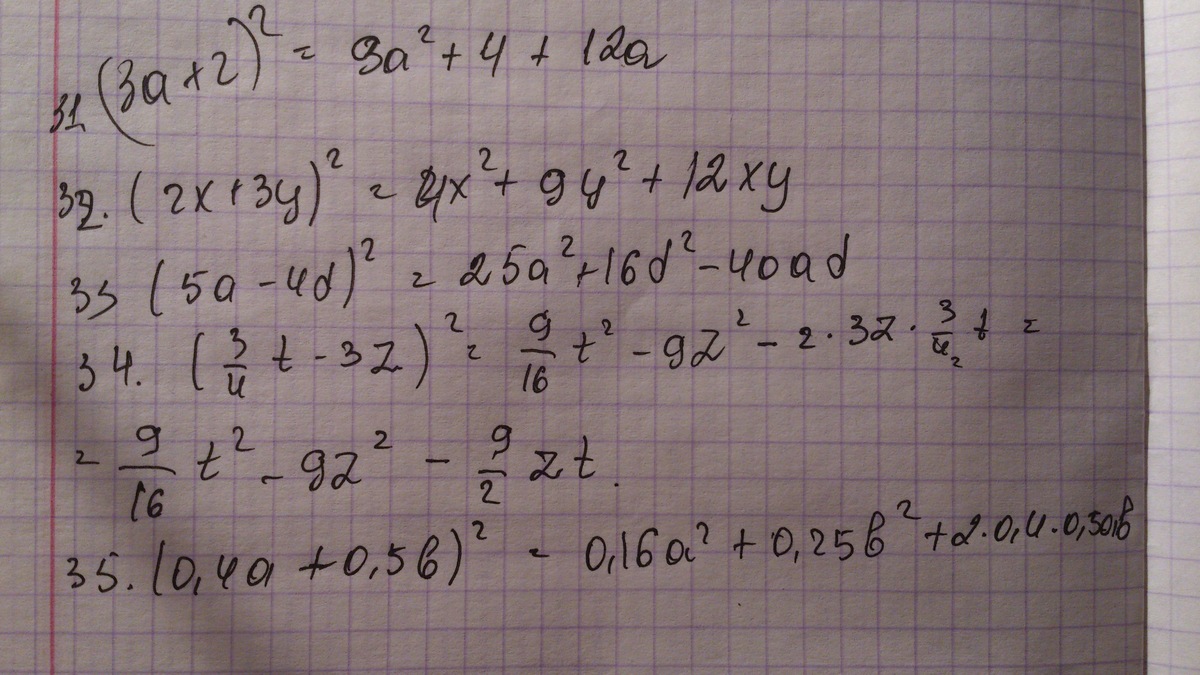 31 (3a+2)² = 9a² + 4 + 12a
32. (2x+3y)² = 4x² + 9y² + 12xy
33 (5a - 4d)² = 25a² + 16d² - 40ad
34. (3/4 t - 3z)² = 9/16 t² - 9z² - 2·3z·3/4₂ t =
= 9/16 t² - 9z² - 9/2 zt.
35. (0,4a + 0,5b)² = 0,16a² + 0,25b² + 2·0,4·0,5ab